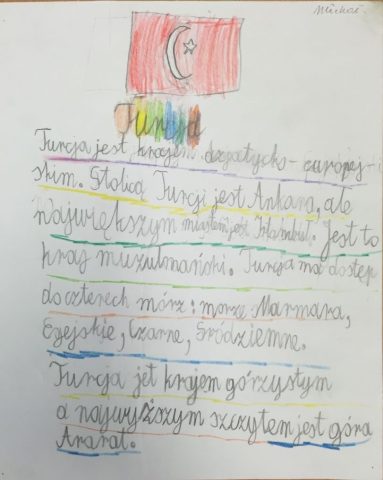 Michał
Turcja
Turcja jest krajem azjatycko-europej-
skim. Stolicą Turcji jest Ankara, ale
największym miastem jest Istambuł. Jest to
kraj muzułmański. Turcja ma dostęp
do czterech mórz: morze Marmara,
Egejskie, Czarne, Śródziemne.
Turcja jet krajem górzystym
a najwyższym szczytem jest góra
Ararat.